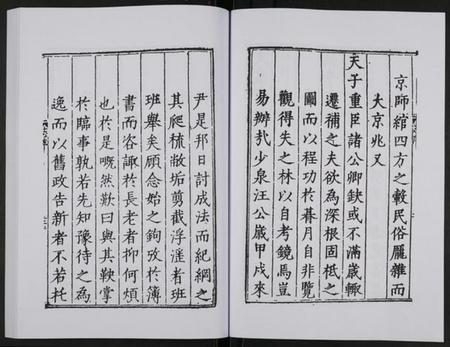 京師綰四方之轂民俗厖雜而
大京兆又
天子重臣諸公卿缺或不滿歲輙
遷補之夫欲為深根固柢之
圖而以程功於朞月自非覽
觀得失之林以自考鏡焉豈
易辦㢤少泉汪公歲甲戌來
尹是邦日討成法而紀綱之
其爬梳敝垢剪裁浮漫者班
班舉矣顧念始之鉤攷於簿
書而咨諏於長老者抑何煩
也於是嘅然歎曰與其鞅掌
於臨事孰若先知豫待之為
逸而以舊政告新者不若托